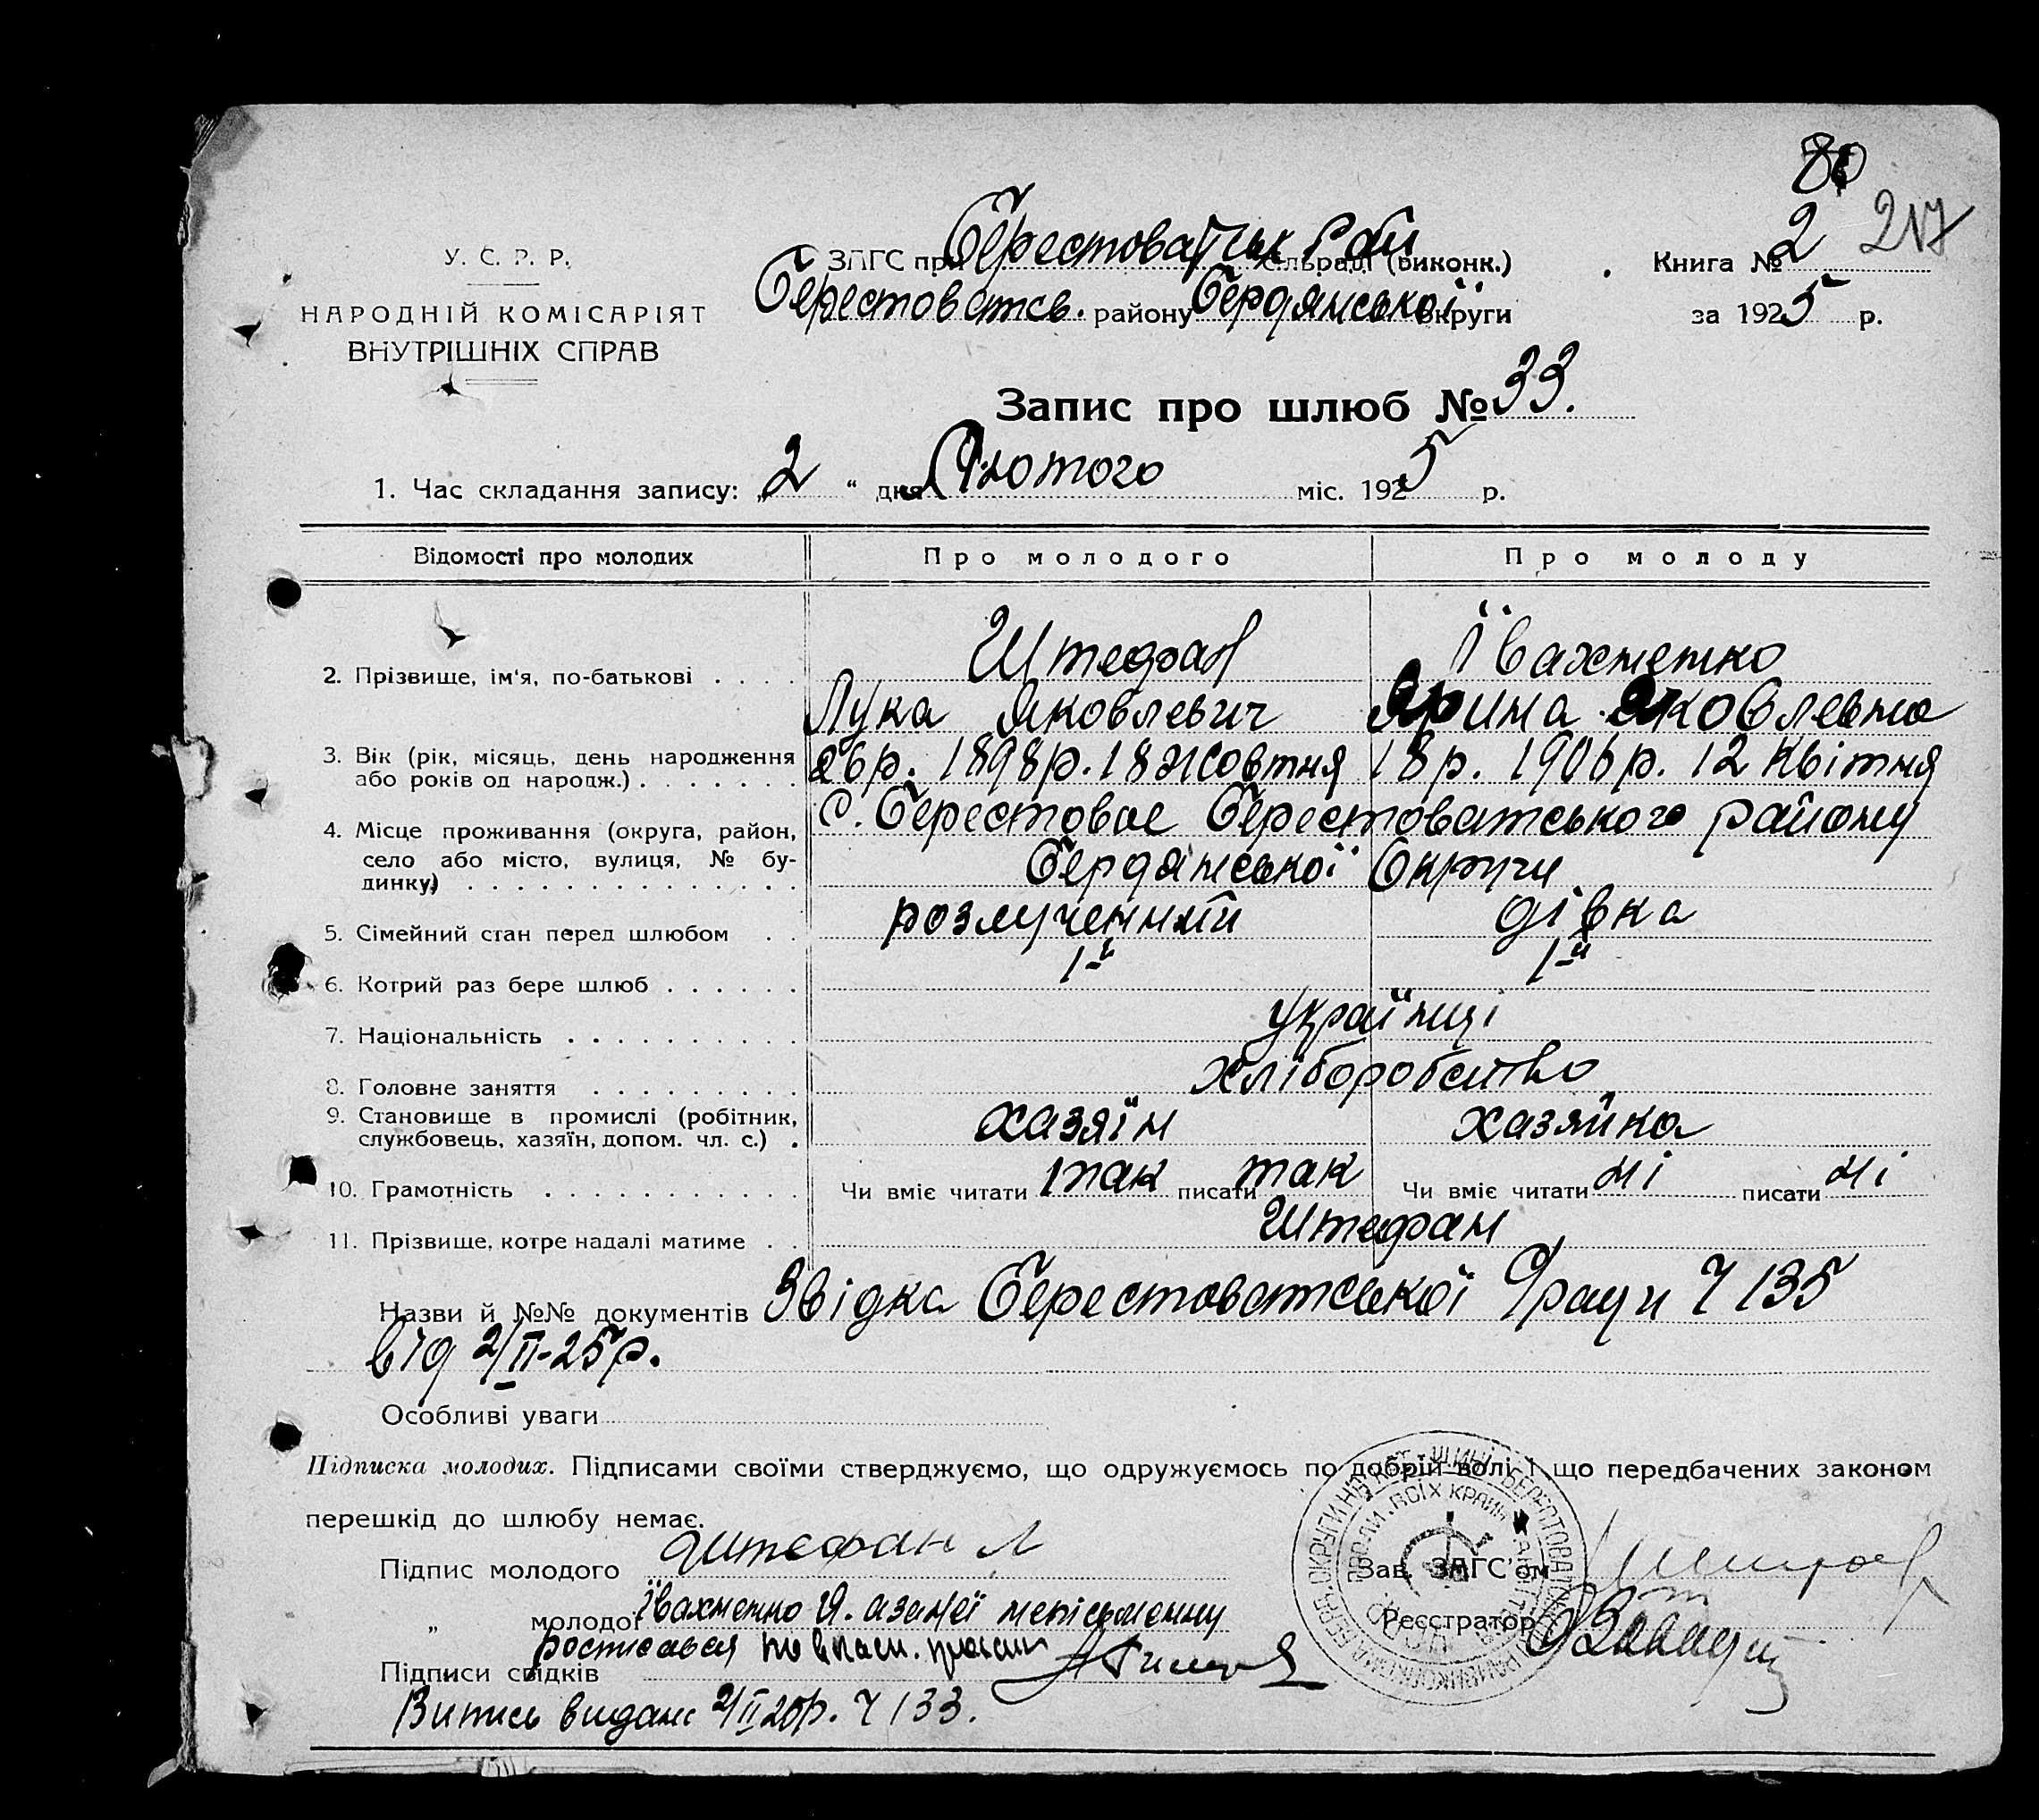 80
217
У. С. Р. Р.
НАРОДНІЙ КОМІСАРІЯТ
ВНУТРІШНІХ СПРАВ
ЗАГС при Берестоватськ Рай сільраді (виконк.)
Берестоватсь. району Бердянської округи
Книга № 2
за 1925 р.
Запис про шлюб № 33.
1. Час складання запису: „2“ дня Лютого міс. 1925 р.
Відомості про молодих Про молодого Про молоду
2. Прізвище, ім'я, по-батькові Штефан Івахненко
Лука Яковлевич Ярина Яковлевна
3. Вік (рік, місяць, день народження або років од народж.) 26р. 1898р. 18 Жовтня 18р. 1906р. 12 Квітня
4. Місце проживання (округа, район, село або місто, вулиця, № будинку) С. Берестовое Берестоватського району
Бердянської Округи
5. Сімейний стан перед шлюбом розлученний дівка
6. Котрий раз бере шлюб 1-й 1-й
7. Національність українці
8. Головне заняття хліборобство
9. Становище в промислі (робітник, службовець, хазяїн, допом. чл. с.) хазяїн хазяйка
10. Грамотність Чи вміє читати так писати так Чи вміє читати ні писати ні
11. Прізвище, котре надалі матиме Штефан
Назви й №№ документів Звідка Берестоватської С/ради Ч 135
від 2/II-25р.
Особливі уваги
Підписка молодих. Підписами своїми стверджуємо, що одружуємось по добрій волі і що передбачених законом
перешкід до шлюбу немає.
Підпис молодого Штефан Л
Зав. ЗАГС'ом
„ молодої Івахненко Я. а за неї неписьменну
Реєстратор
росписався по
Підписи свідків
Випись видана 2/II 25р. Ч 133.